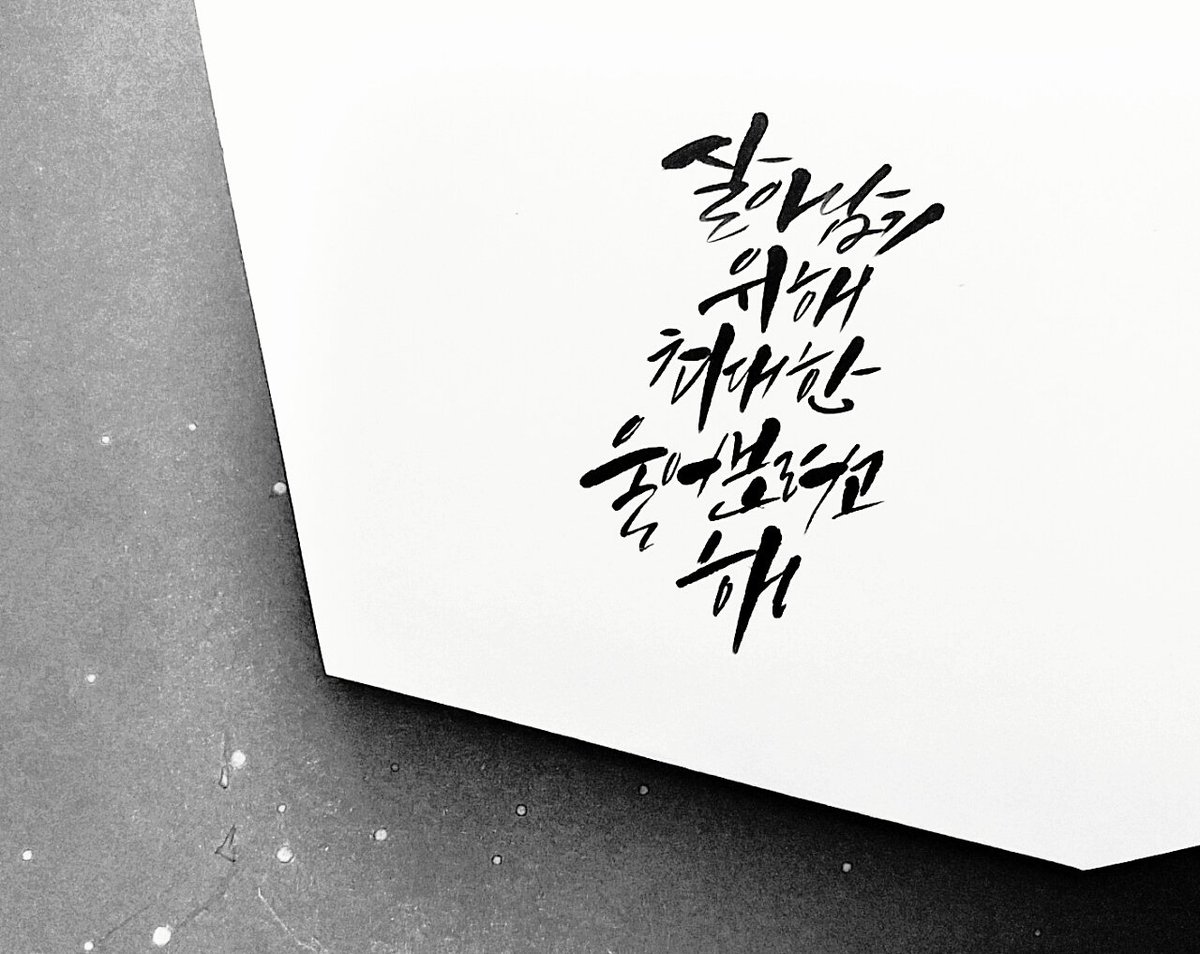 살아남기
위해
최대한
울어보려고
해